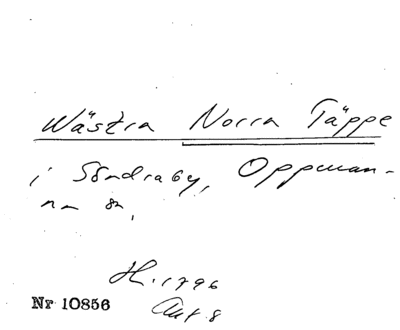 Wästra Norra Täppe
i Söndraby, Oppman-
na sn,
H. 1796
Akt 8
Nr 10856